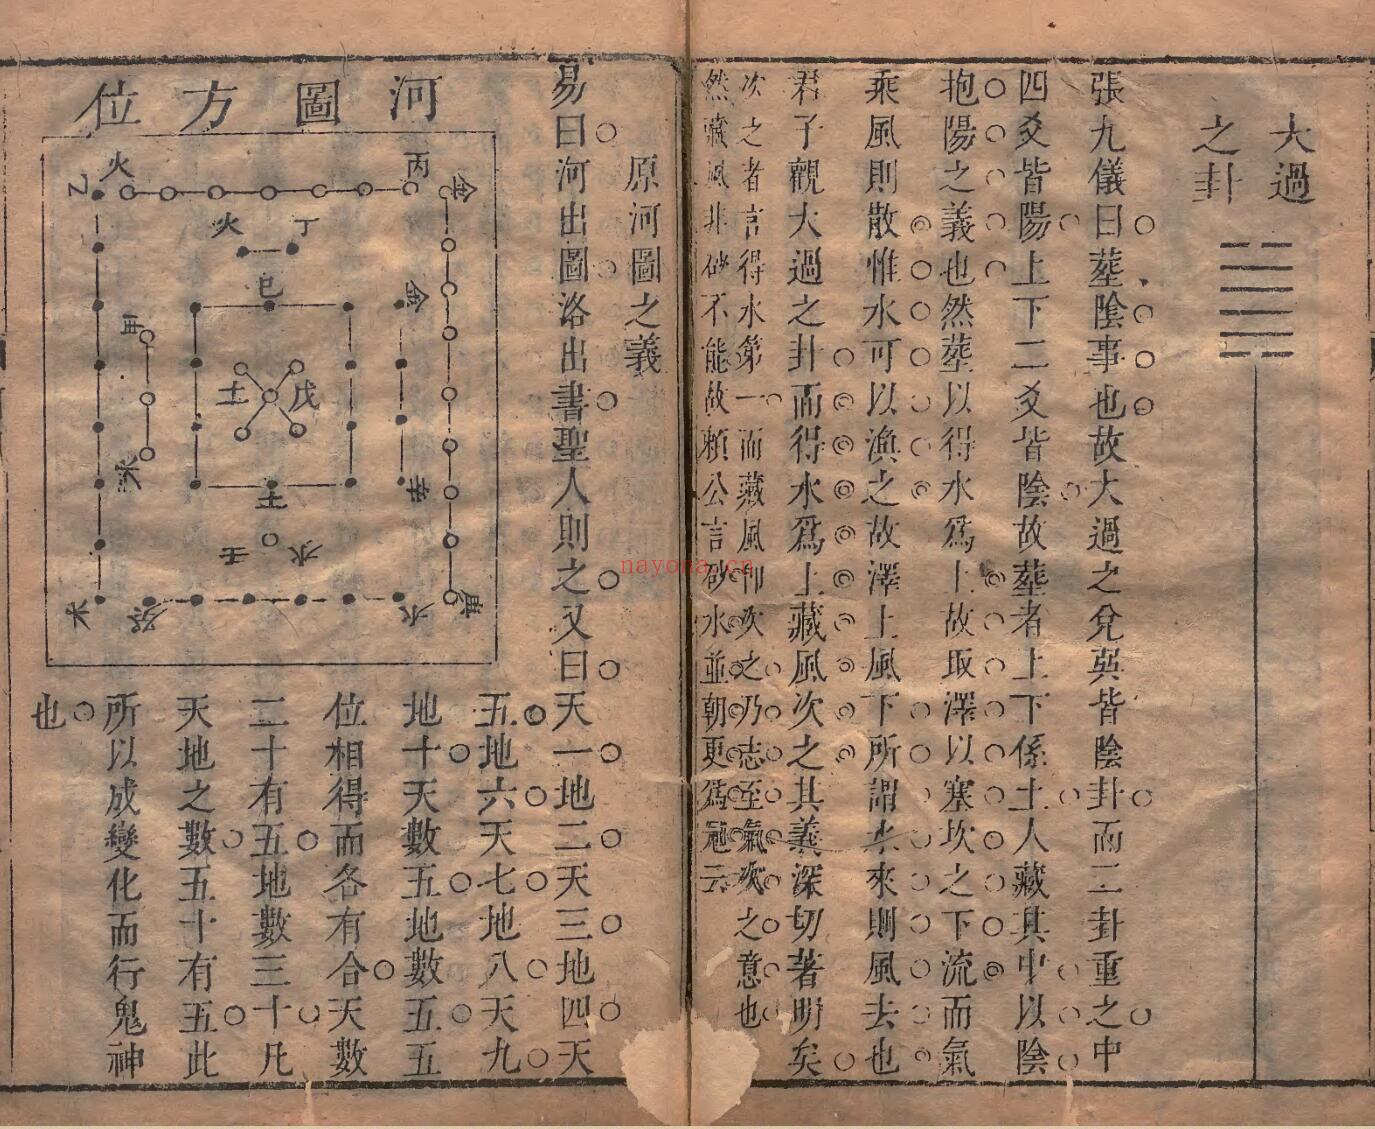 大過
之卦
張九儀曰塟陰事也故大過之兌巽皆陰卦而二卦重之中
四爻皆陽上下二爻皆陰故塟者上下係土人藏其中以陰
抱陽之義也然塟以得水爲上故取澤以塞坎之下流而氣
乘風則散惟水可以漁之故澤上風下所謂水來則風去也
君子觀大過之卦而得水爲上藏風次之其義深切著明矣
次之者言得水第一而藏風卽次之乃志至氣次之意也
然藏風非砂不能故賴公言砂水並朝更爲冠云
原河圖之義
易曰河出圖洛出書聖人則之又曰天一地二天三地四天
五地六天七地八天九
地十天數五地數五五
位相得而各有合天數
二十有五地數三十凡
天地之數五十有五此
所以成變化而行鬼神
也
河圖方位
丙
金
火
乙
丁
火
巳
金
甲
戊
土
木
辛
壬
水
庚
水
癸
木
nayona.cn